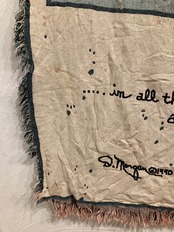 ....in all th
D. Morgan ©1990